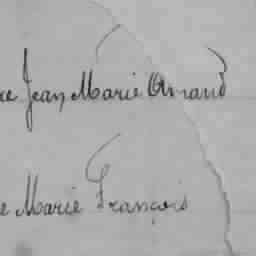 re Jean Marie Amand
e Marie François